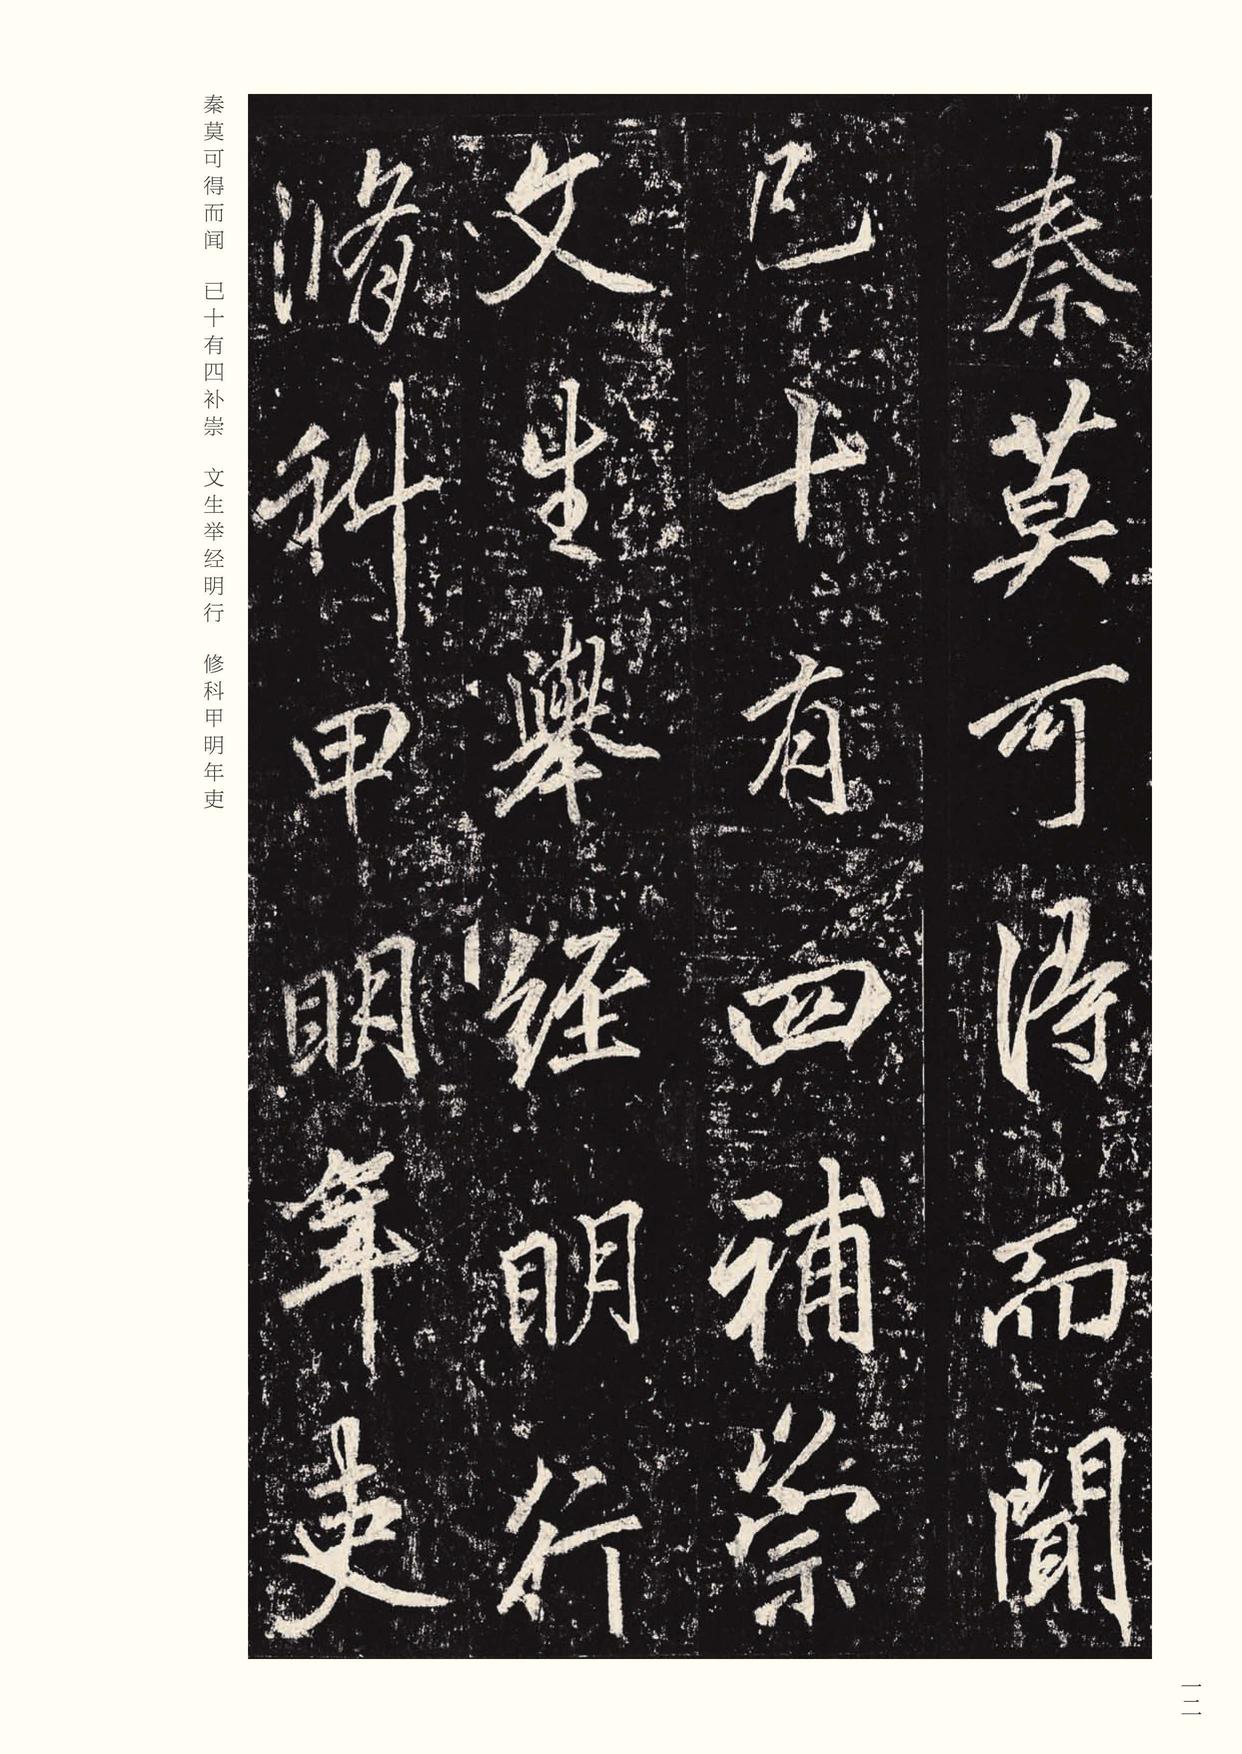 秦莫可得而聞
已十有四補崇
文生舉經明行
脩科甲明年吏
秦莫可得而闻 已十有四补崇 文生举经明行 修科甲明年吏
一二